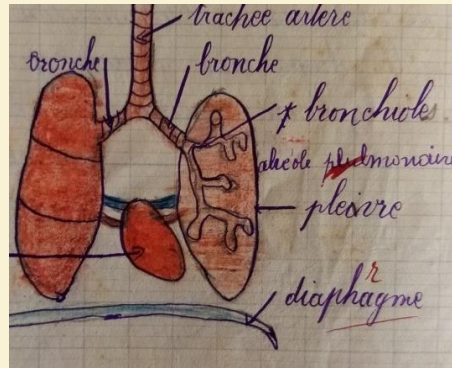 trachée artère
bronche
bronche
bronchioles
alvéole pulmonaire
pleivre
r
diaphagme